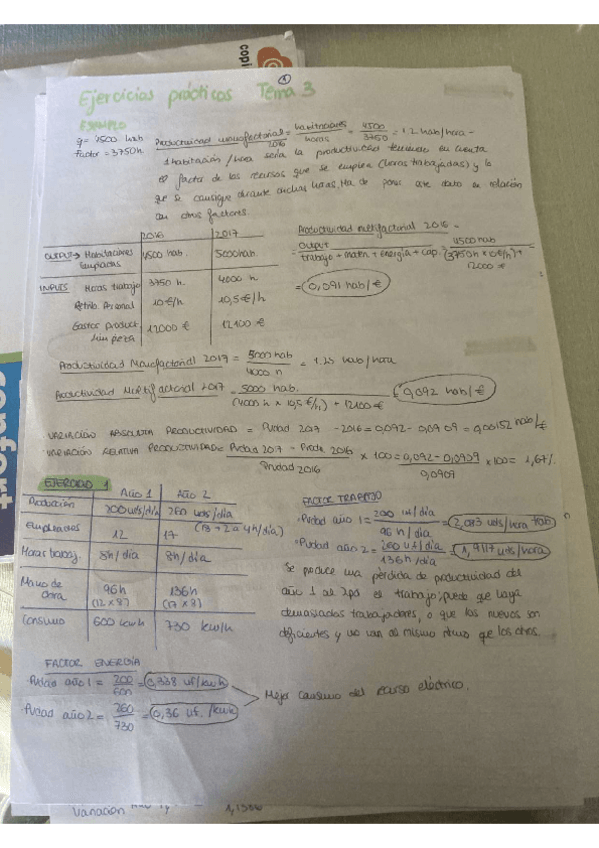 Ejercicios prácticos Tema 3
EJEMPLO
q = 4500 hab. Productividad monofactorial 2016 = habitaciones / horas = 4500 / 3750 = 1.2 hab/hora -
Factor = 3750 h.
1 habitación / hora sería la productividad teniendo en cuenta
el factor de los recursos que se emplea (horas trabajadas) y lo
que se consigue durante dichas horas, ha de poner ese dato en relación
con otros factores.
2016 2017
OUTPUT → Habitaciones limpiadas 4500 hab. 5000 hab.
INPUTS Horas trabajo 3750 h 4000 h
Retrib. Personal 10 €/h 10,5 €/h
Gastos product. limpieza 12000 € 12100 €
Productividad multifactorial 2016 =
= Output / trabajo + mater + energía + cap. = 4500 hab / (3750h x 10€/h) + 12000 € =
= 0,091 hab/€
Productividad Monofactorial 2017 = 5000 hab / 4000 h = 1.25 hab/hora
Productividad Multifactorial 2017 = 5000 hab. / (4000 h x 10,5 €/h) + 12100 € = 0,092 hab/€
VARIACIÓN ABSOLUTA PRODUCTIVIDAD = Pvdad 2017 - 2016 = 0,092 - 0,0909 = 0,00152 hab/€
VARIACIÓN RELATIVA PRODUCTIVIDAD = Pvdad 2017 - Pvda 2016 / Pvdad 2016 x 100 = 0,092 - 0,0909 / 0,0909 x 100 = 1,67%
EJERCICIO 1
AÑO 1 AÑO 2
Producción 200 uts/día 260 uts/día
Empleados 12 17
Horas trabaj. 8h/día 8h/día
Mano de obra 96h (12 x 8) 136h (17 x 8)
Consumo 600 kw/h 730 kw/h
FACTOR TRABAJO
Pvdad año 1 = 200 ut/día / 96 h/día = 2,083 uts/hora trab
Pvdad año 2 = 260 ut/día / 136h/día = 1,9117 uts/hora
Se produce una pérdida de productividad del
año 1 al 2 es el trabajo; puede que haya
demasiados trabajadores, o que los nuevos son
deficientes y no van al mismo ritmo que los otros.
FACTOR ENERGÍA
Pvdad año 1 = 200 / 600 = 0,338 ut/kwh
Pvdad año 2 = 260 / 730 = 0,36 ut./kwh
Mejor consumo del recurso eléctrico.
Variación